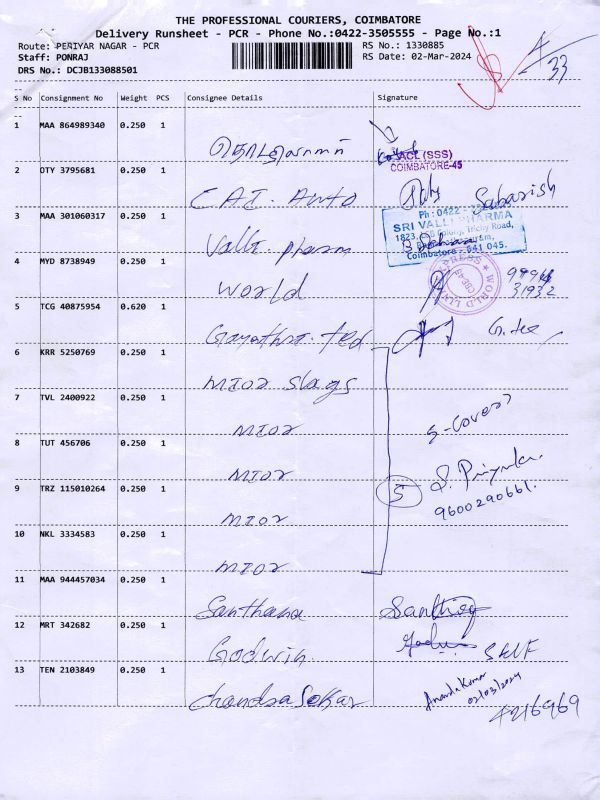 THE PROFESSIONAL COURIERS, COIMBATORE
Delivery Runsheet - PCR - Phone No.:0422-3505555 - Page No.:1
Route: PERIYAR NAGAR - PCR
RS No.: 1330885
Staff: PONRAJ
RS Date: 02-Mar-2024
DRS No.: DCJB133088501
33
S No Consignment No Weight PCS Consignee Details Signature
1 MAA 864989340 0.250 1
ACL (SSS)
COIMBATORE-45
2 DTY 3795681 0.250 1 C.A.I. Auto Sabarish
Ph : 0422 -
SRI VALLI PHARMA
1823, Colony, Trichy Road,
Coimbatore - 641 045.
3 MAA 301060317 0.250 1 Valli. pharm
4 MYD 8738949 0.250 1 World
WORLD LINE EXPRESS
CBE-45
31932
5 TCG 40875954 0.620 1 Gayathri. ted
6 KRR 5250769 0.250 1 MIOR slags
7 TVL 2400922 0.250 1 MIOR
5-Covers
8 TUT 456706 0.250 1 MIOR
5 S. Priyanka.
9 TRZ 115010264 0.250 1 MIOR
9600290661.
10 NKL 3334583 0.250 1 MIOR
11 MAA 944457034 0.250 1 Santhana
12 MRT 342682 0.250 1 Godwin. SELF
13 TEN 2103849 0.250 1 Chandra Sekar
Ananda Kumar
02/03/2024
4216969